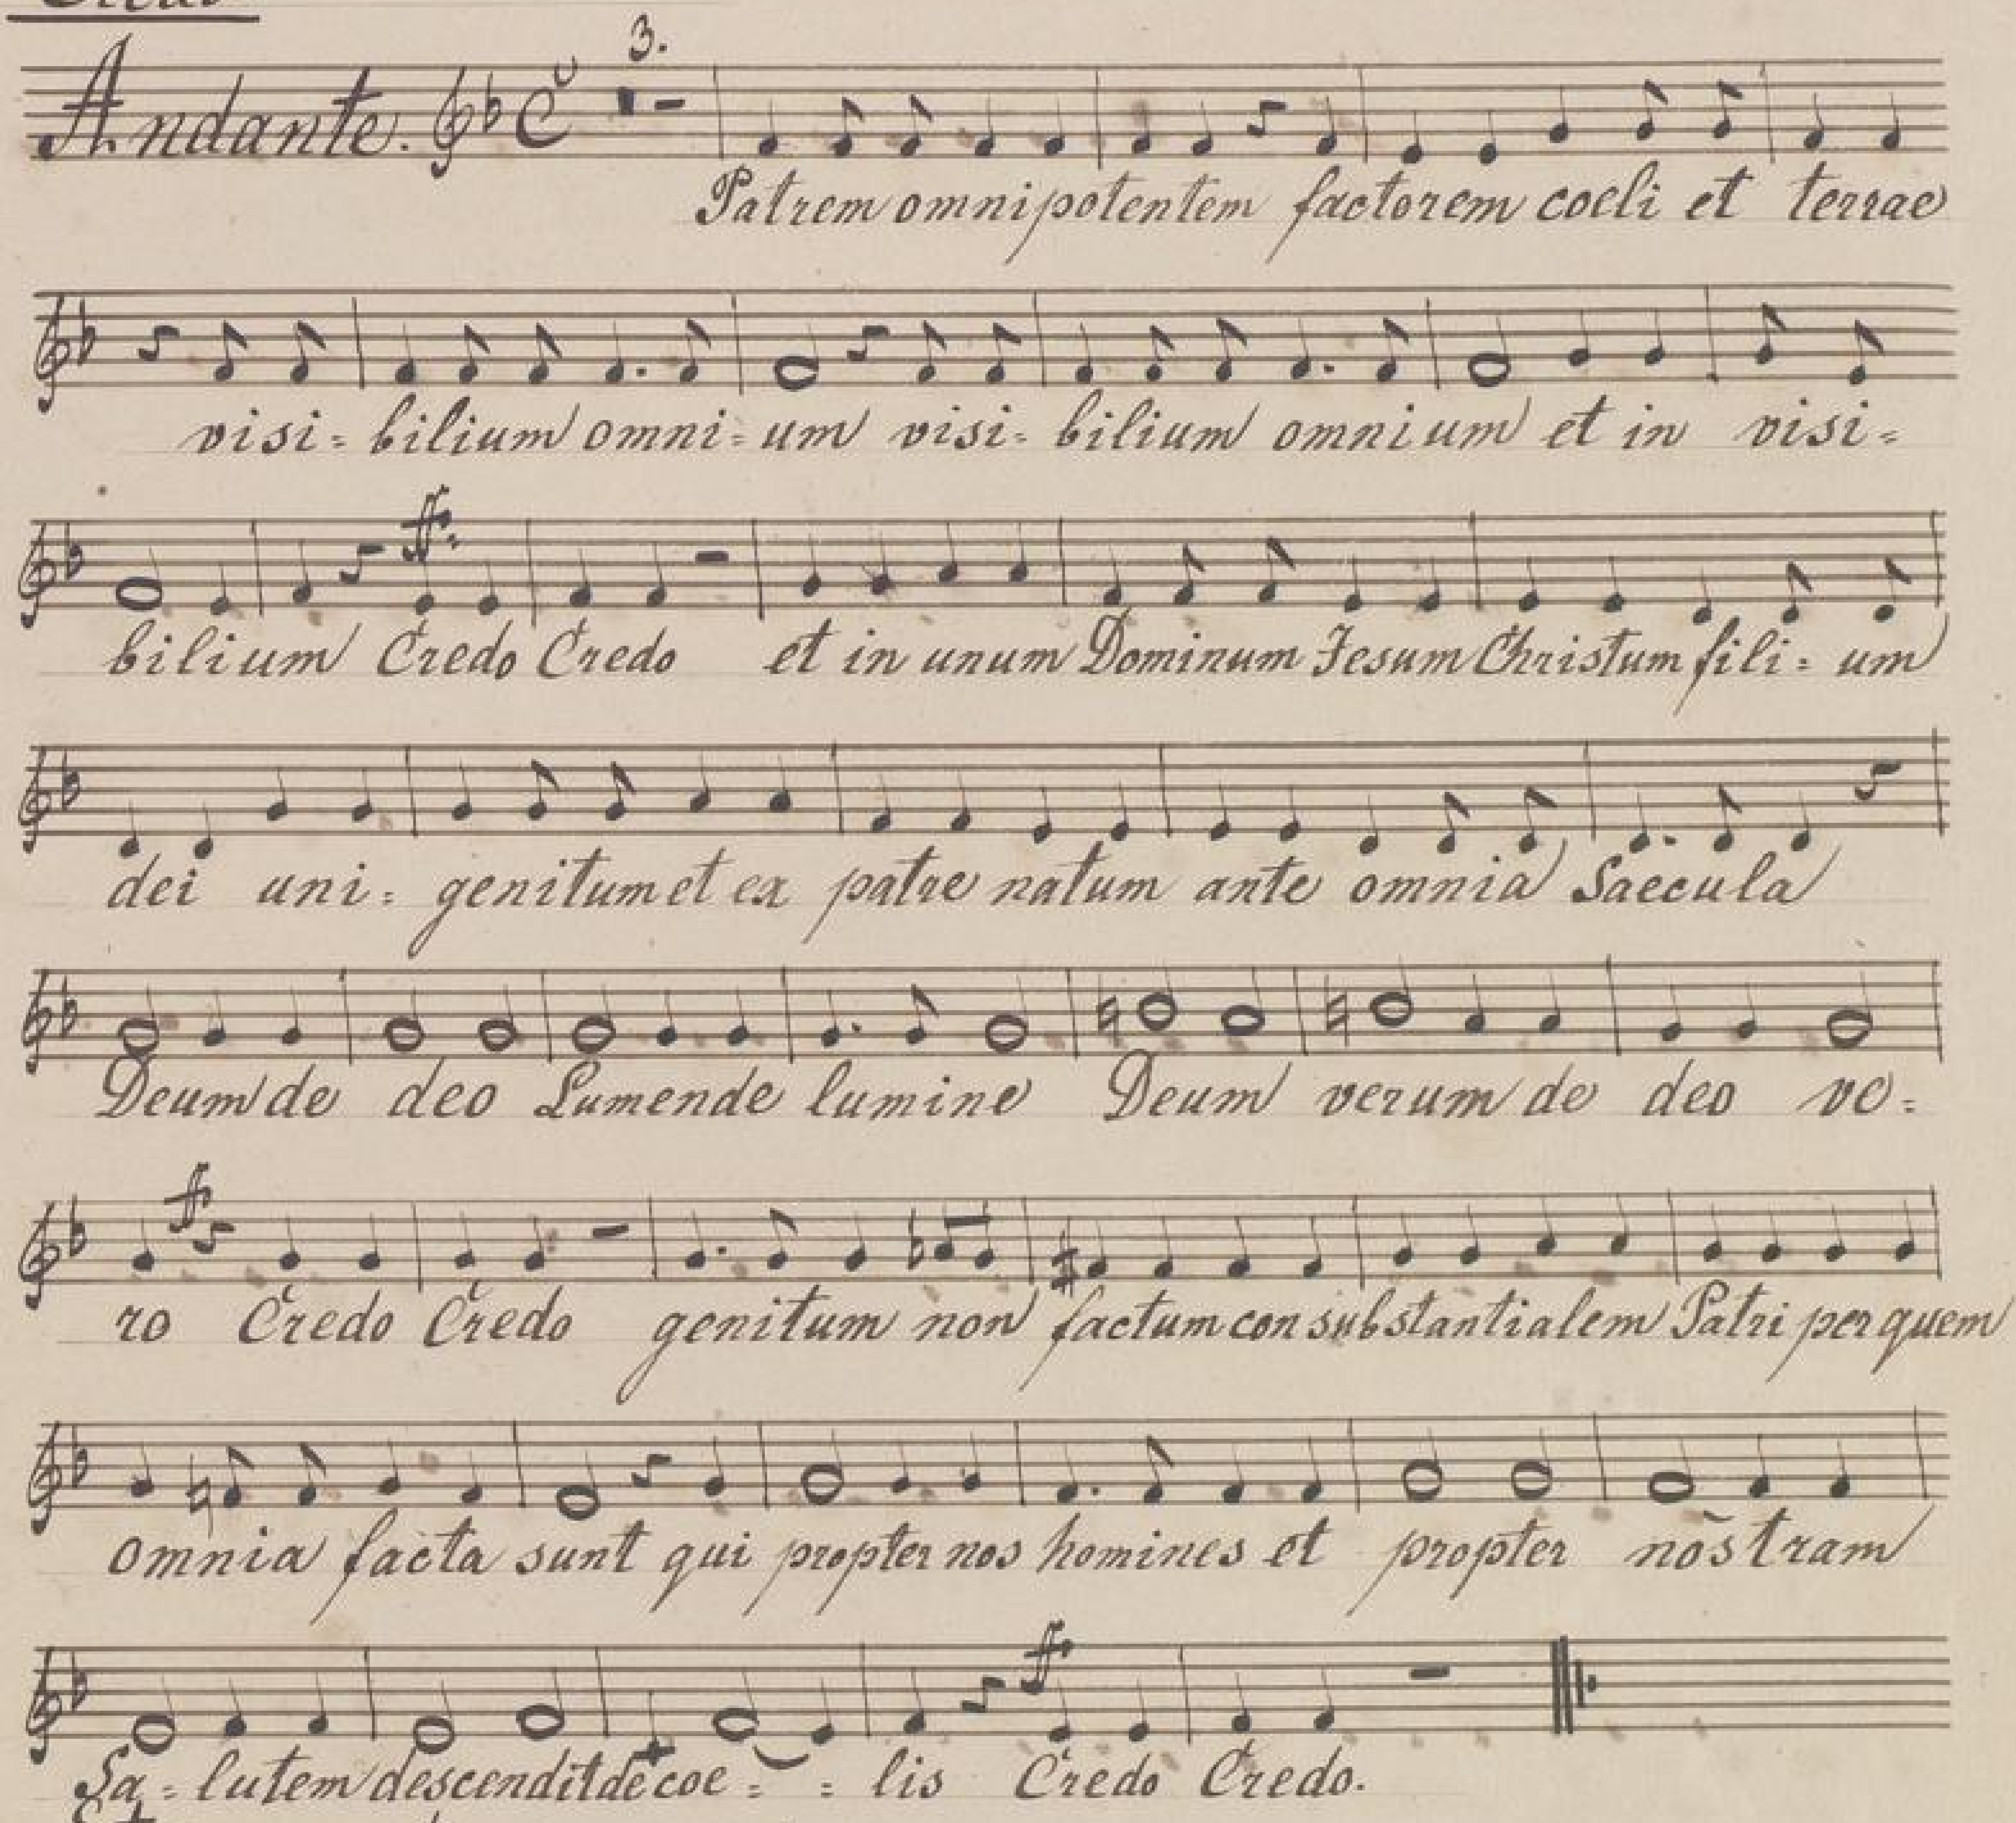 Credo
3.
Andante.
Patrem omnipotentem factorem coeli et terrae
visi= bilium omni= um visi= bilium omnium et in visi=
ff.
bilium Credo Credo et in unum Dominum Jesum Christum fili= um
dei uni= genitum et ex patre natum ante omnia Saecula
Deum de deo Lumen de lumine Deum verum de deo ve=
f
ro Credo Credo genitum non factum con substantialem Patri per quem
omnia facta sunt qui propter nos homines et propter nostram
ff
Sa= lutem descendit de coe= = lis Credo Credo.